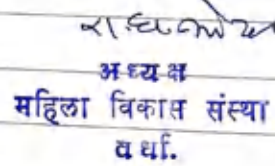 अध्यक्ष
महिला विकास संस्था
वर्धा.